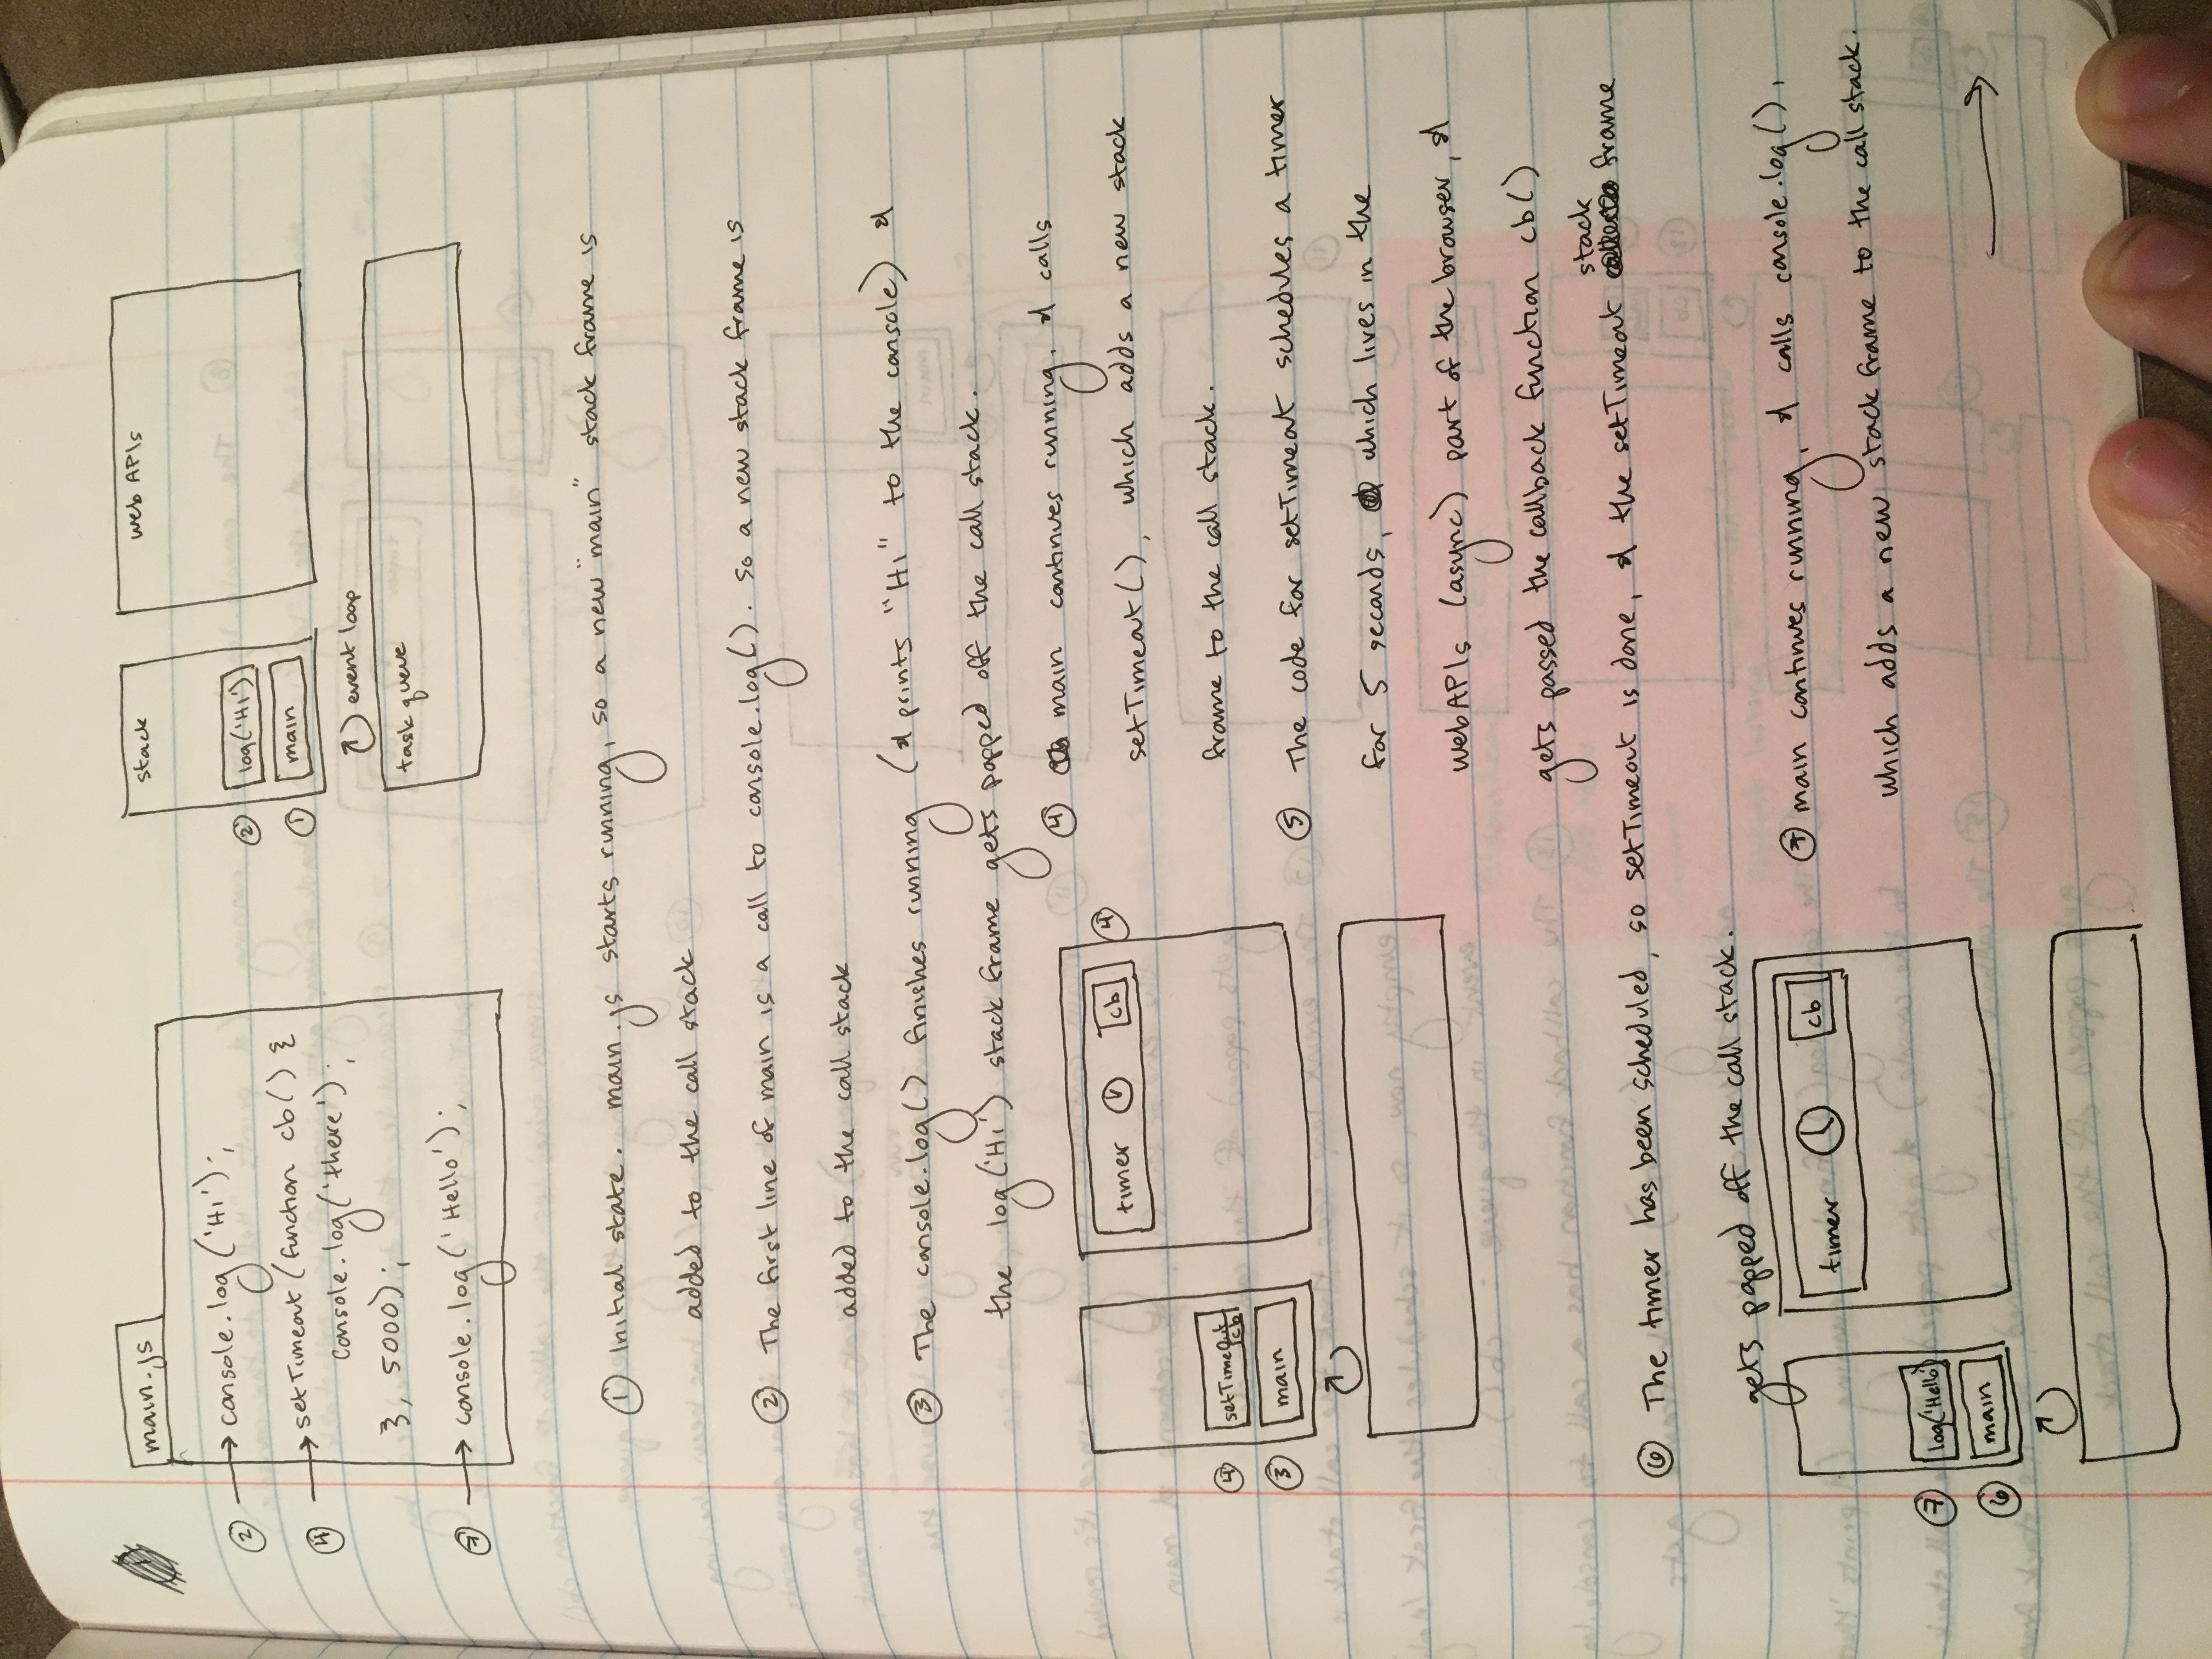 main.js
② console.log('Hi');
④ setTimeout(function cb() {
console.log('there');
}, 5000);
⑦ console.log('Hello');
stack
② log('Hi')
① main
web APIs
event loop
task queue
① Initial state. main.js starts running, so a new "main" stack frame is
added to the call stack
② The first line of main is a call to console.log(). So a new stack frame is
added to the call stack
③ The console.log() finishes running (& prints "Hi" to the console) &
the log('Hi') stack frame gets popped off the call stack.
④ setTimeout cb
③ main
timer cb ④
④ main continues running, & calls
setTimeout(), which adds a new stack
frame to the call stack.
⑤ The code for setTimeout schedules a timer
for 5 seconds, which lives in the
webAPIs (async) part of the browser, &
gets passed the callback function cb()
⑥ The timer has been scheduled, so setTimeout is done, & the setTimeout stack frame
gets popped off the call stack.
⑦ log('Hello')
⑥ main
timer cb
⑦ main continues running, & calls console.log(),
which adds a new stack frame to the call stack.